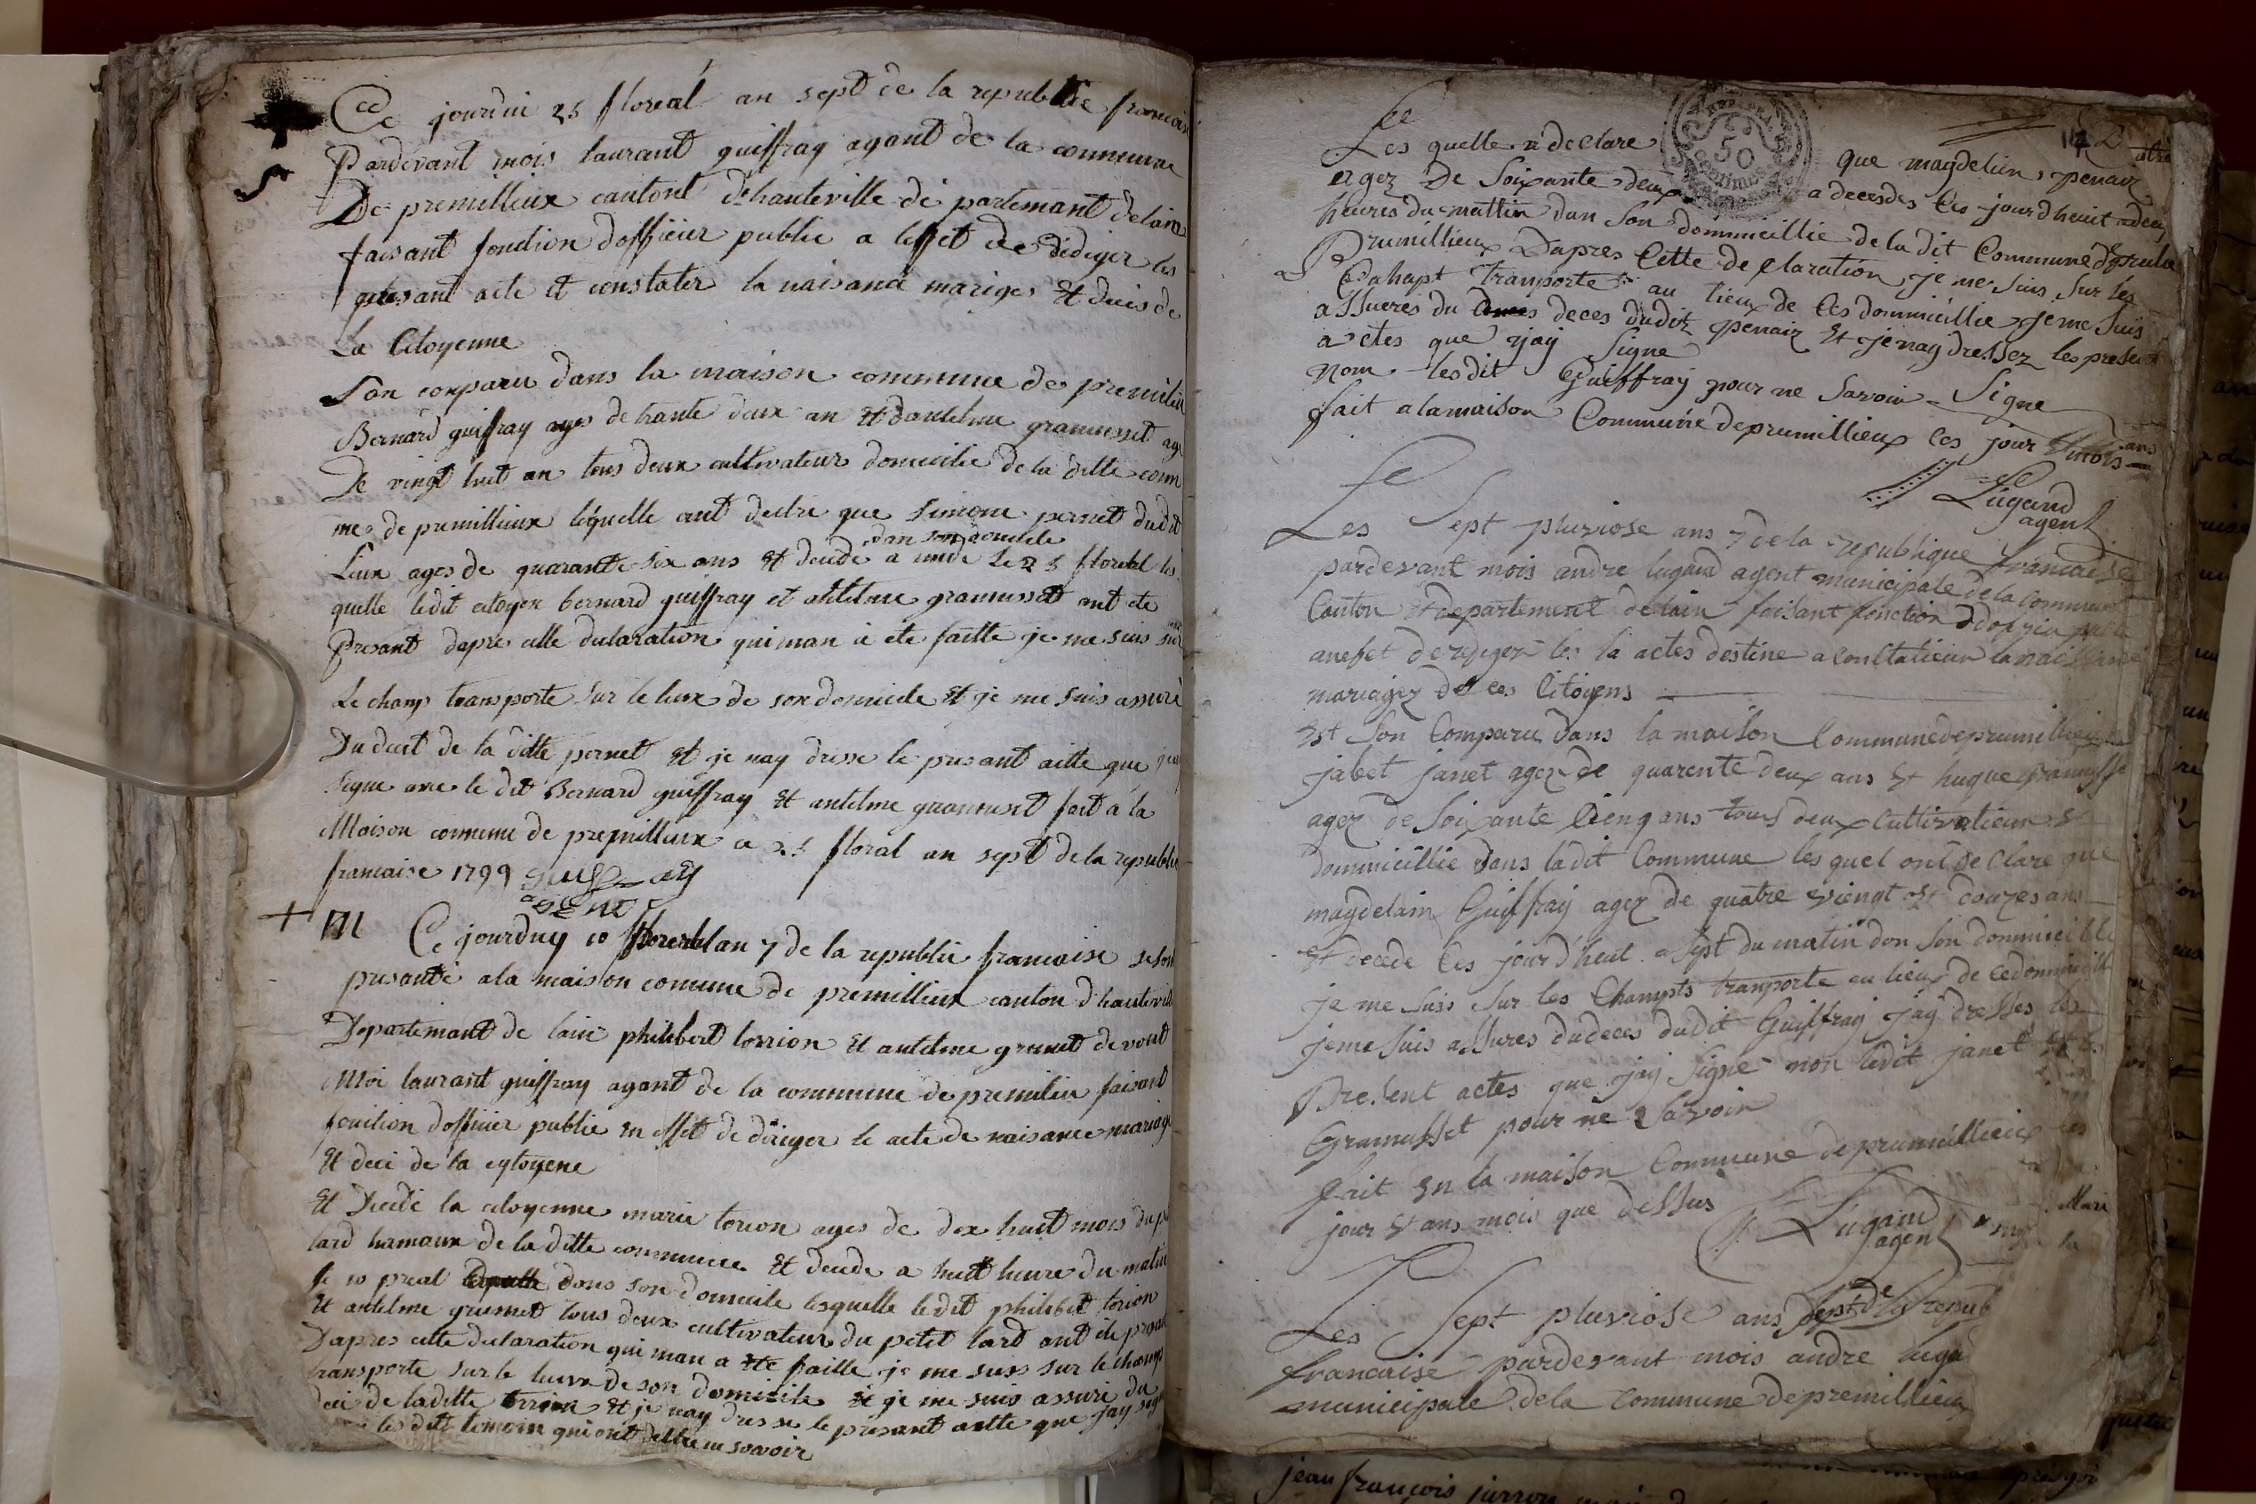 Ce jourdui 25 floreal an sept de la republic francais
Pardevant mois laurant guiffray agant de la commune
De premillieux cantont dehauteville de partemant delain
faisant fonction dofficier public a leffet de dediger les
presant acte et constater la naisance mariges et duis de
La Citoyenne
Son conparu dans la maison commune de premilieu
Bernard guiffray ages de trante deux an et dantelme gramusset age
De vingt huit an tous deux cultivateur domicilie de la ditte comm
mes de premillieux lequelle ont declre que Simone pernet dudit
dan son domicile
Lieux ages de quarante six ans et decede a midi le 25 floreal les
quelle ledit citoyen bernard guiffray et antelme gramusset ont ete
presant dapre celle declaration qui man a ete faitte je me suis sur
Le champ transporte sur le lieux de son domicile et je me suis assuré
Du deset de la ditte pernet et je nay dresse le presant aitte que jay
signe avec le dit Bernard guiffray et antelme gramuset fait a la
Maison commune de premillieux a 25 floral an sept de la republic
francaise 1799 guiffray
agent
+ m Ce jourduy 10 floreal an 7 de la republic francaise se son
presante a la maison comune de premillieux canton d'hauteville
Departemant de lain philibert torrion et antelme grumet devont
Moi laurant guiffray agant de la commune de premilieu faisant
fonction dofficier public en effet de diriger le acte de naisance mariage
et deci de la cytoyene
et Decede la citoyenne marie torion ages de dix huit mois du pe
lard hermaux de la ditte commune et decede a huit heure du matin
le 10 preal dans son domicile lesquelle ledit philibert torion
et antelme grumet tous deux cultivateur du petit lard ont ete presant
Dapres cette declaration qui man a ete faitte je me suis sur le champ
transporte sur le lieux de son domicile et je me suis assuré du
deci de ladite torion et je nay dresse le presant aitte que jay signe
les dit temoin qui ont declre ne savoir
114
REP. FRA.
50
Centimes
Les quelle a declare que maydelien penair
agez De Soixante deux a decedes les jourdheuit a deux
heures du mattin dan Son dommieillie de la dit Commune de
Prumillieux Dapres Cette declaration je me suis Sur les
Chahapt Transporte au lieux de les dommieillie je me suis
assueres du deces dudit penair et je nay dressez les present
actes que jay Signe
nom lesdit Guiffray pour ne Savoir Signe
fait a la maison Commune de prumillieux les jour et mois ans
Lugand
agent
Les Sept pluviose ans 7 de la republique francaise
pardevant mois andre lugand agent municipale de la Commune
Canton et departement delain faisant fonction
anefet deredigez les la actes destine a Constatieur la naissance
mariagez de les Citoyens
est Son Comparu Dans la maison Commune de prumillieux
jabet janet agez de quarente deux ans et hugue Gramusse
agez de Soixante Cienq ans tous deux Cultivatieur et
dommieillie dans ladit Commune les quel ont declare que
maydelain Guiffray agez de quatre viengt et douzes ans
et decede les jour d'heut a Sept du matin dan Son dommieille
je me suis Sur les Champts transporte au lieux de ce dommieille
je me suis assures du deces dudit Guiffray jay dresses les
Present actes que jay Signe non ledit janet et
Gramusset pour ne Savoir
fait en la maison Commune de prumillieux les
jour et ans mois que dessus
Lugand
agent
Mari
la
Les Sept pluviose ans Sept de la repub
francaise pardevant mois andre luga
municipale de la Commune de premillieux
jean françois